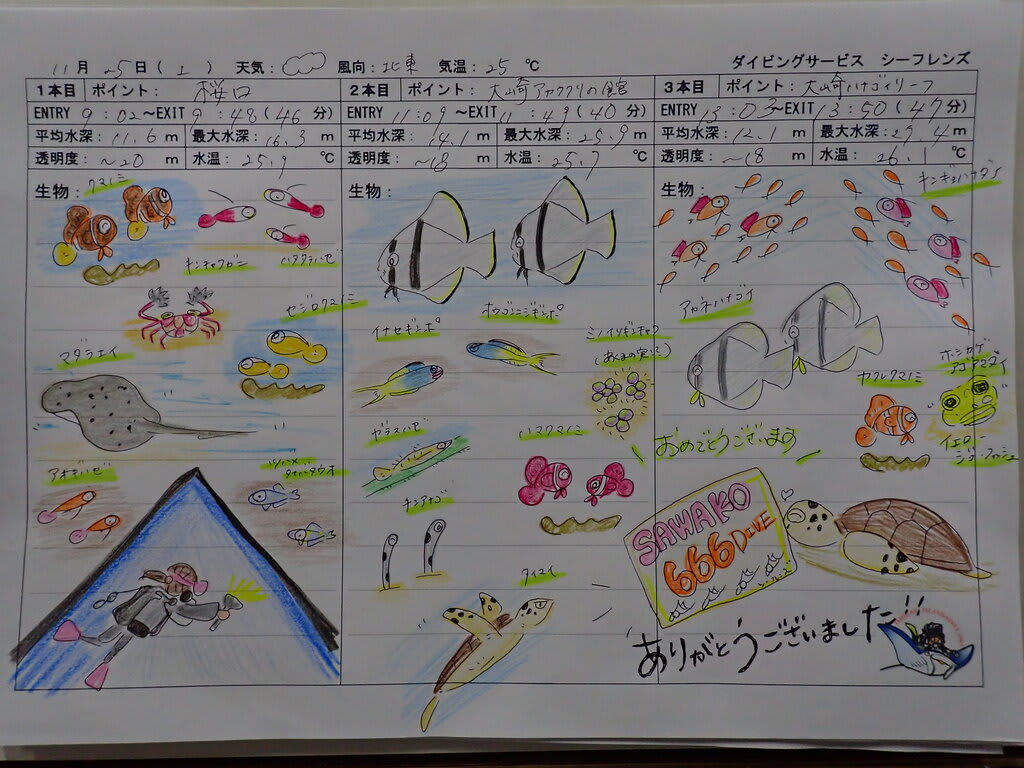 11月 25日(土) 天気： 風向：北東 気温：25 ℃ ダイビングサービス シーフレンズ
1本目 ポイント： 桜口
ENTRY 9：02～EXIT 9：48(46分)
平均水深：11.6 m 最大水深：16.3 m
透明度：～20 m 水温：25.9 ℃
生物：
クマノミ
キンチャクガニ
ハタタテハゼ
セジロクマノミ
マダラエイ
アオギハゼ
2本目 ポイント： 大崎アカククリの館
ENTRY 11：09～EXIT 11：49(40分)
平均水深：14.1 m 最大水深：25.9 m
透明度：～18 m 水温：25.7 ℃
生物：
イナセギンポ
オウゴンニジギンポ
ミノイソギンチャク
(あくまの実)
ガラスハゼ
ハマクマノミ
チンアナゴ
タイマイ
3本目 ポイント： 大崎ハナゴイリーフ
ENTRY 13：03～EXIT 13：50(47分)
平均水深：12.1 m 最大水深：27.4 m
透明度：～18 m 水温：26.1 ℃
生物：
キンギョハナダイ
アカネハナゴイ
カクレクマノミ
ホシカゲアゴアマダイ
イエロージョーフィッシュ
おめでとうございます
SAWAKO
666 DIVE
シーフレンズ
ありがとうございました!!